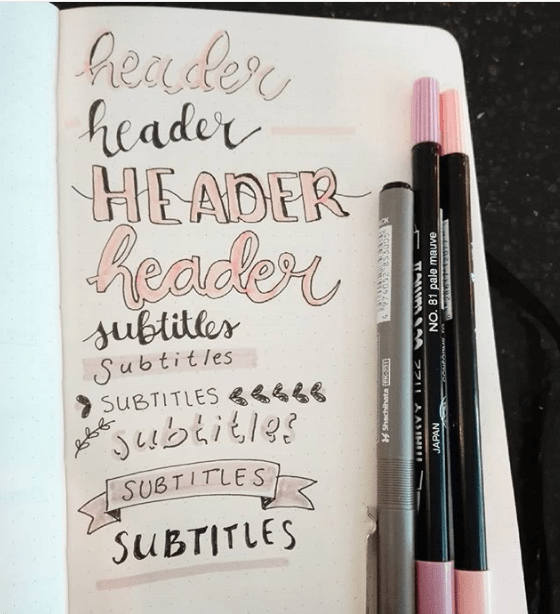 header
header
HEADER
header
subtitles
subtitles
SUBTITLES
subtitles
SUBTITLES
SUBTITLES
Shachihata
JAPAN
NO. 81 pale mauve